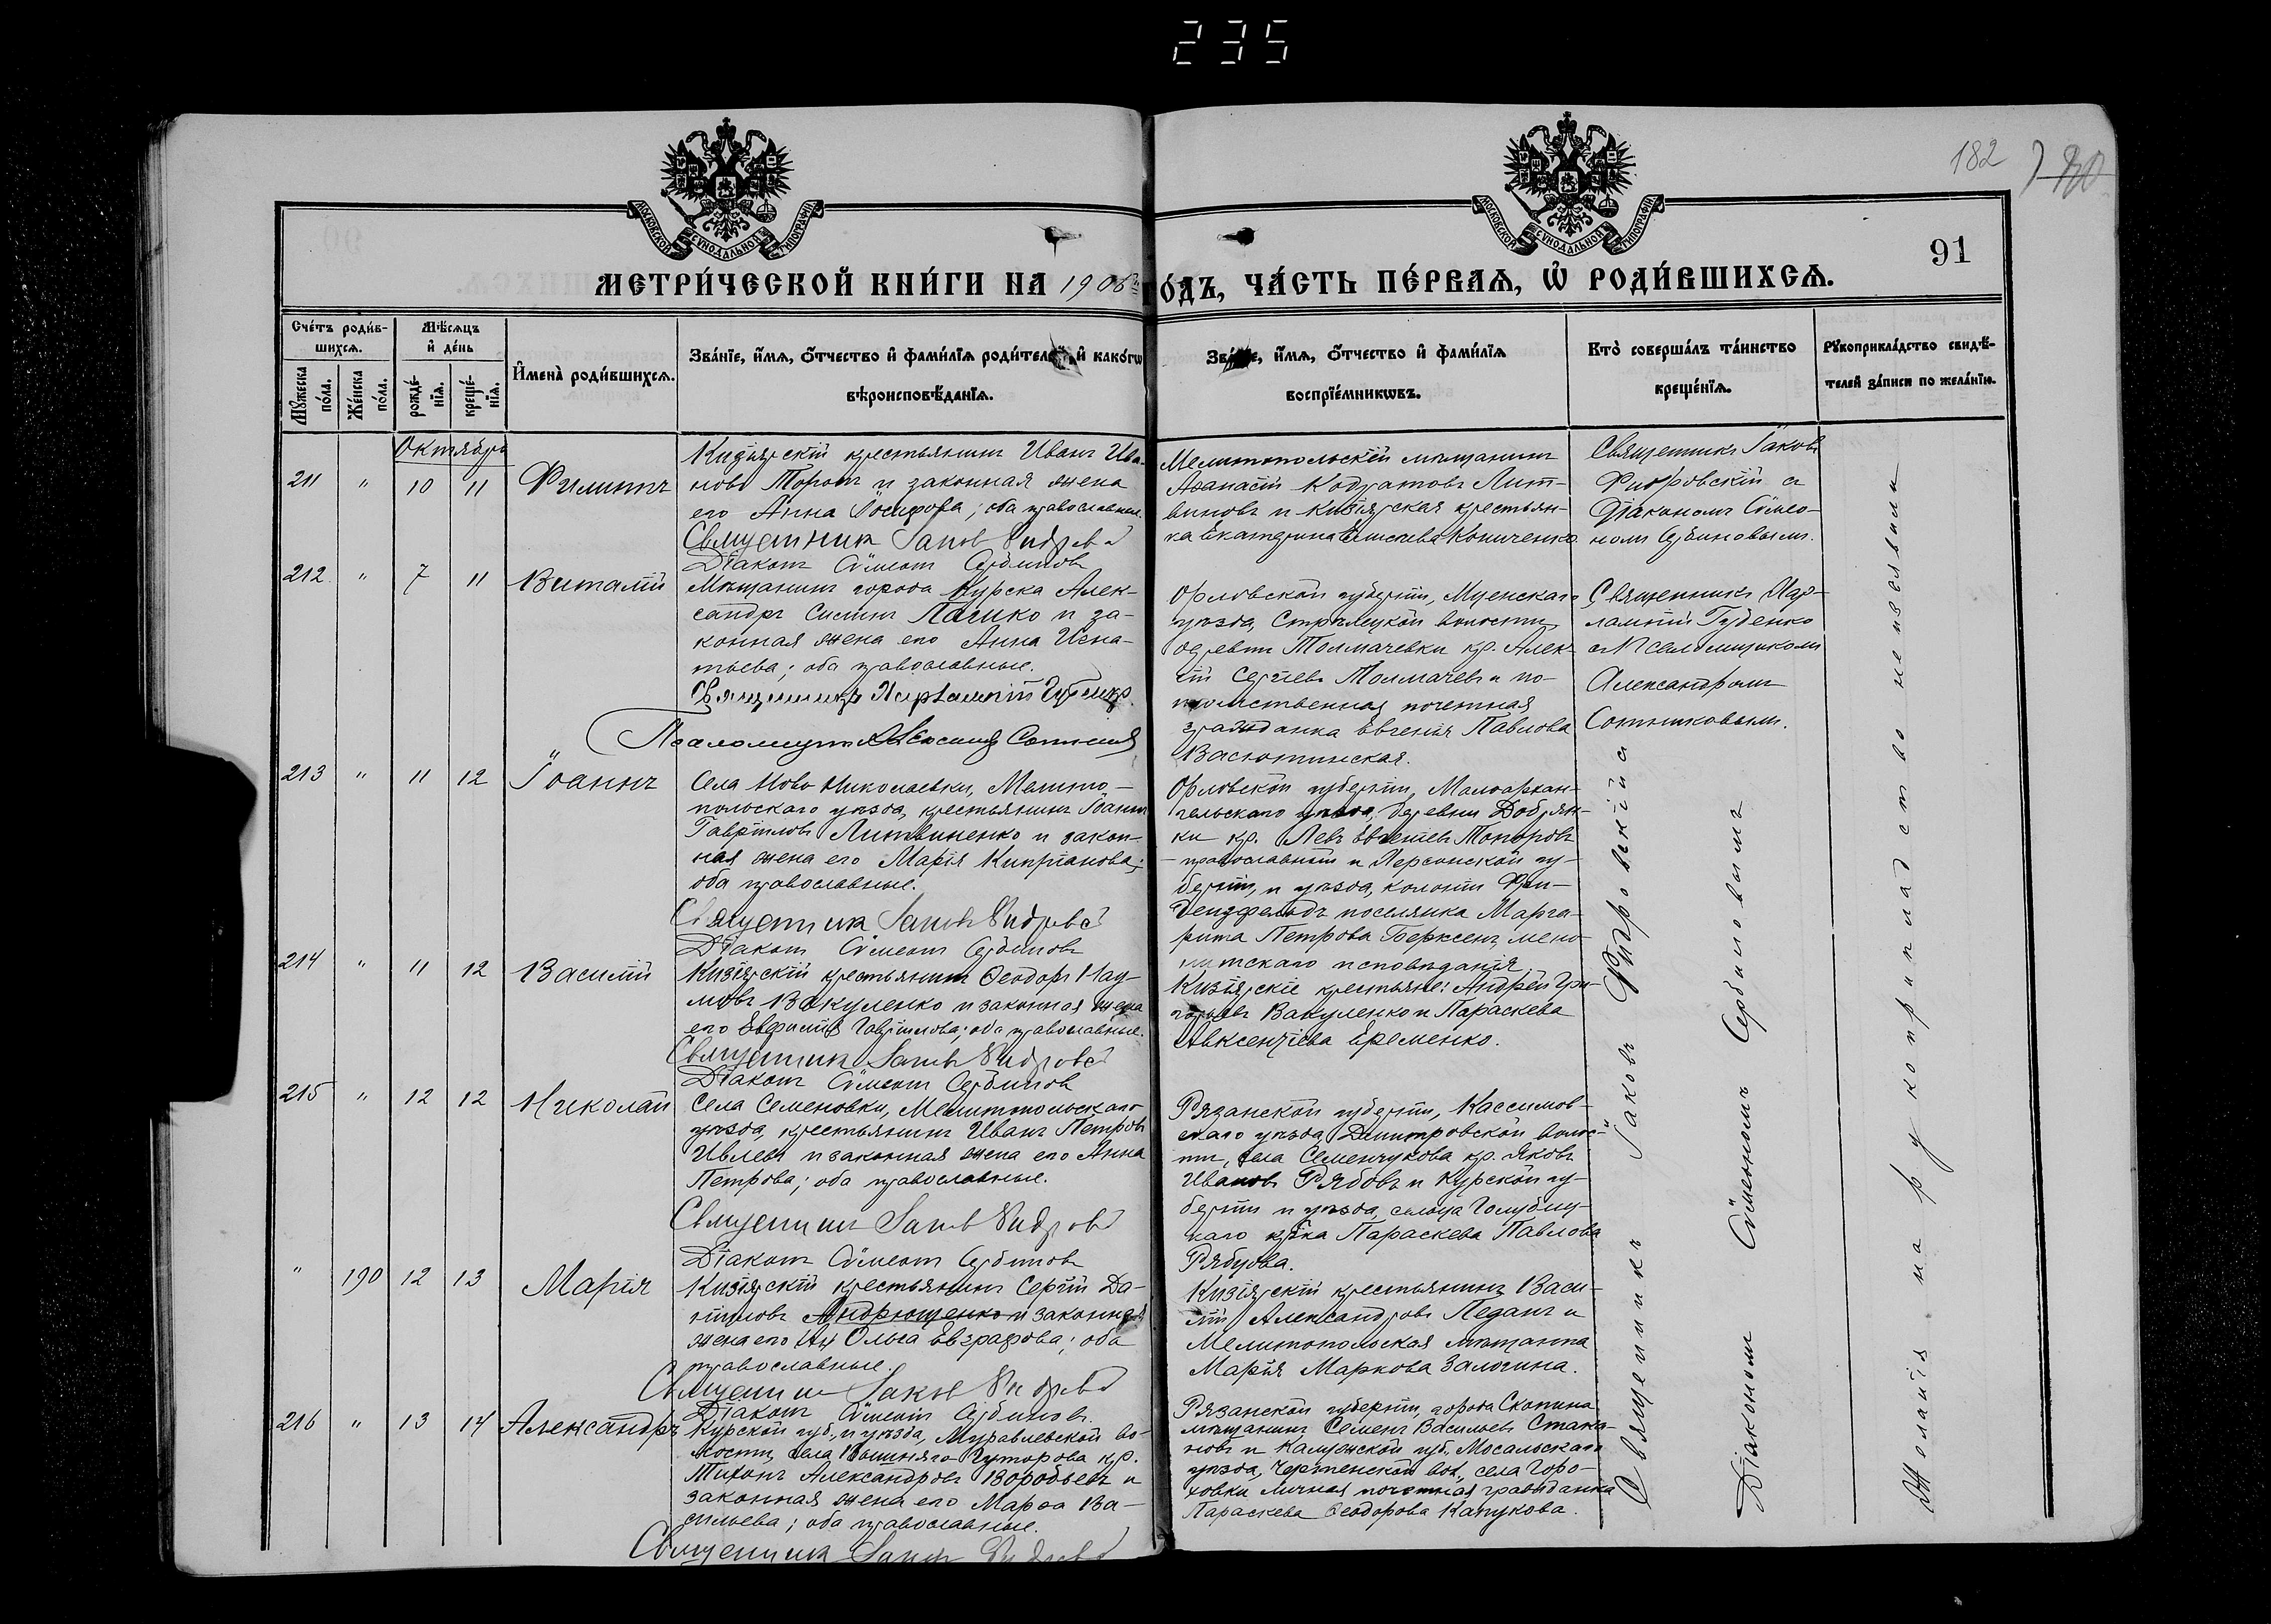 235
182
91
МОСКОВСКОЙ СУНОДАЛЬНОЙ ТИПОГРАФІИ
МОСКОВСКОЙ СУНОДАЛЬНОЙ ТИПОГРАФІИ
МЕТРИ́ЧЕСКОЙ КНИ́ГИ НА 1906 го́дъ, ЧА́СТЬ ПЕ́РВАѦ, Ѡ҆ РОДИ́ВШИХСѦ.
Сче́тъ роди́в-
шихсѧ.
Мꙋ́жеска по́ла.
Же́нска по́ла.
Мѣ́сѧцъ
и҆ де́нь
рожде́-
нїѧ.
креще́-
нїѧ.
И҆мена̀ роди́вшихсѧ.
Зва́нїе, и҆́мѧ, ѻ҆́тчество и҆ фами́лїѧ роди́телей, и҆ како́гѡ
вѣроисповѣ́данїѧ.
Зва́нїе, и҆́мѧ, ѻ҆́тчество и҆ фами́лїѧ
воспрїе́мникѡвъ.
Кто̀ соверша́лъ та́инство
креще́нїѧ.
Рꙋкоприкла́дство свидѣ́-
телей за́писи по жела́нїю.
Октябрь
211 " 10 11 Филиппъ
Кизіярскій крестьянинъ Иванъ Ива-
новъ и законная жена
его Анна Іосифова; оба православные.
Священникъ Іаковъ
Діаконъ Сѵмеонъ Сербиновъ
Мелитопольскій мѣщанинъ
Аѳанасій Кодратовъ Лит-
виновъ и Кизіярская крестьян-
ка Екатерина Кониченко.
Священникъ Іаковъ
съ
Діакономъ Сѵмео-
номъ Сербиновымъ.
212 " 7 11 Виталій
Мѣщанинъ города Курска Алек-
сандръ Лашко и за-
конная жена его Анна Игна-
тьева; оба православные.
Священникъ Харлампій Губенко
Псаломщикъ Александръ
Орловской губерніи, Мценскаго
уѣзда, Стрѣлецкой волости,
деревни Толмачевки кр. Алек-
сѣй Сергіевъ Толмачевъ и по-
томственная почетная
гражданка Евгенія Павлова
Васютинская.
Священникъ Хар-
лампій Губенко
съ Псаломщикомъ
Александромъ
Сотниковымъ.
213 " 11 12 Іоаннъ
Села Ново Николаевки, Мелито-
польскаго уѣзда, крестьянинъ Іоаннъ
Гавріиловъ Литвиненко и закон-
ная жена его Марія Кипріанова;
оба православные.
Священникъ Іаковъ
Діаконъ Сѵмеонъ Сербиновъ
Орловской губерніи, Малоархан-
гельскаго уѣзда, деревни Добрян-
ки кр. Левъ Евгеніевъ Топоровъ
- православный и Херсонской гу-
берніи, и уѣзда, колоніи
поселянка Марга-
рита Петрова мено-
нитскаго исповѣданія.
214 " 11 12 Василій
Кизіярскій крестьянинъ Ѳеодоръ Нау-
мовъ Вакуленко и законная жена
его Евфимія Гавріилова; оба православные.
Священникъ Іаковъ
Діаконъ Сѵмеонъ Сербиновъ
Кизіярскіе крестьяне: Андрей Гри-
горьевъ Вакуленко и Параскева
Авксентіева Еременко.
215 " 12 12 Николай
Села Семеновки, Мелитопольскаго
уѣзда, крестьянинъ Иванъ Петровъ
Ивлевъ и законная жена его Анна
Петрова; оба православные.
Священникъ Іаковъ
Діаконъ Сѵмеонъ Сербиновъ
Рязанской губерніи, Кассимов-
скаго уѣзда, Дмитровской волос-
ти, села Семенчукова кр. Яковъ
Ивановъ Рябовъ и Курской гу-
берніи и уѣзда, сельца Голубиц-
каго кр-ка Параскева Павлова
Рябцова.
" 190 12 13 Марія
Кизіярскій крестьянинъ Сергій Да-
ніиловъ Андрющенко и законная
жена его Ольга Евграфова; оба
православные.
Священникъ Іаковъ
Діаконъ Сѵмеонъ Сербиновъ
Кизіярскій крестьянинъ Васи-
лій Александровъ Педанъ и
Мелитопольская мѣщанка
Марія Маркова Залогина.
216 " 13 14 Александръ
Курской губ., и уѣзда, Муравлевской во-
лости, села Гуторова кр.
Тихонъ Александровъ Воробьевъ и
законная жена его Марѳа Ва-
сильева; оба православные.
Священникъ Іаковъ
Рязанской губерніи, города Скопина
мѣщанинъ Семенъ Васильевъ Стака-
новъ и Калужской губ., Мосальскаго
уѣзда, Чертенской вол., села Горо-
ховки личная почетная гражданка
Параскева Ѳеодорова Капукова.
Священникъ Іаковъ съ
Діакономъ Сѵмеономъ Сербиновымъ
Желанія на рукоприкладство не изъявили